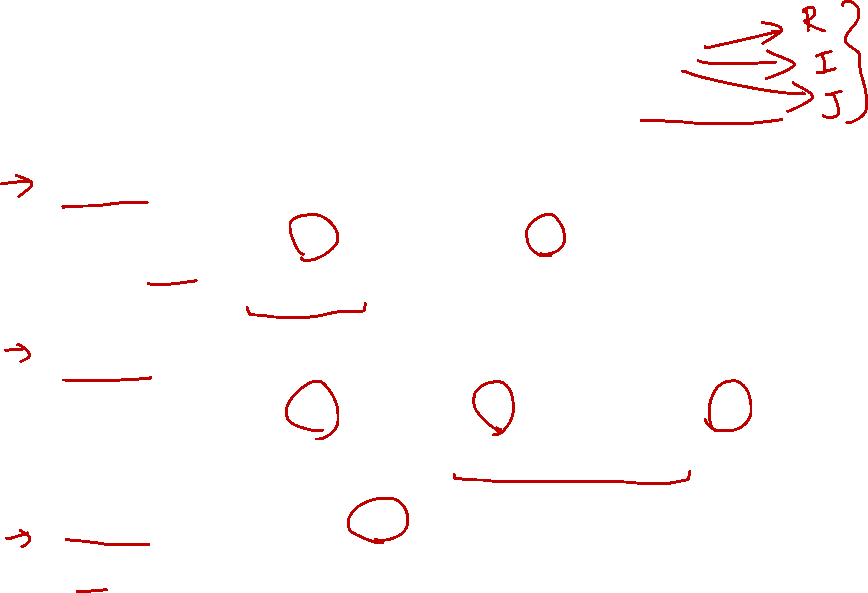 R
I
J